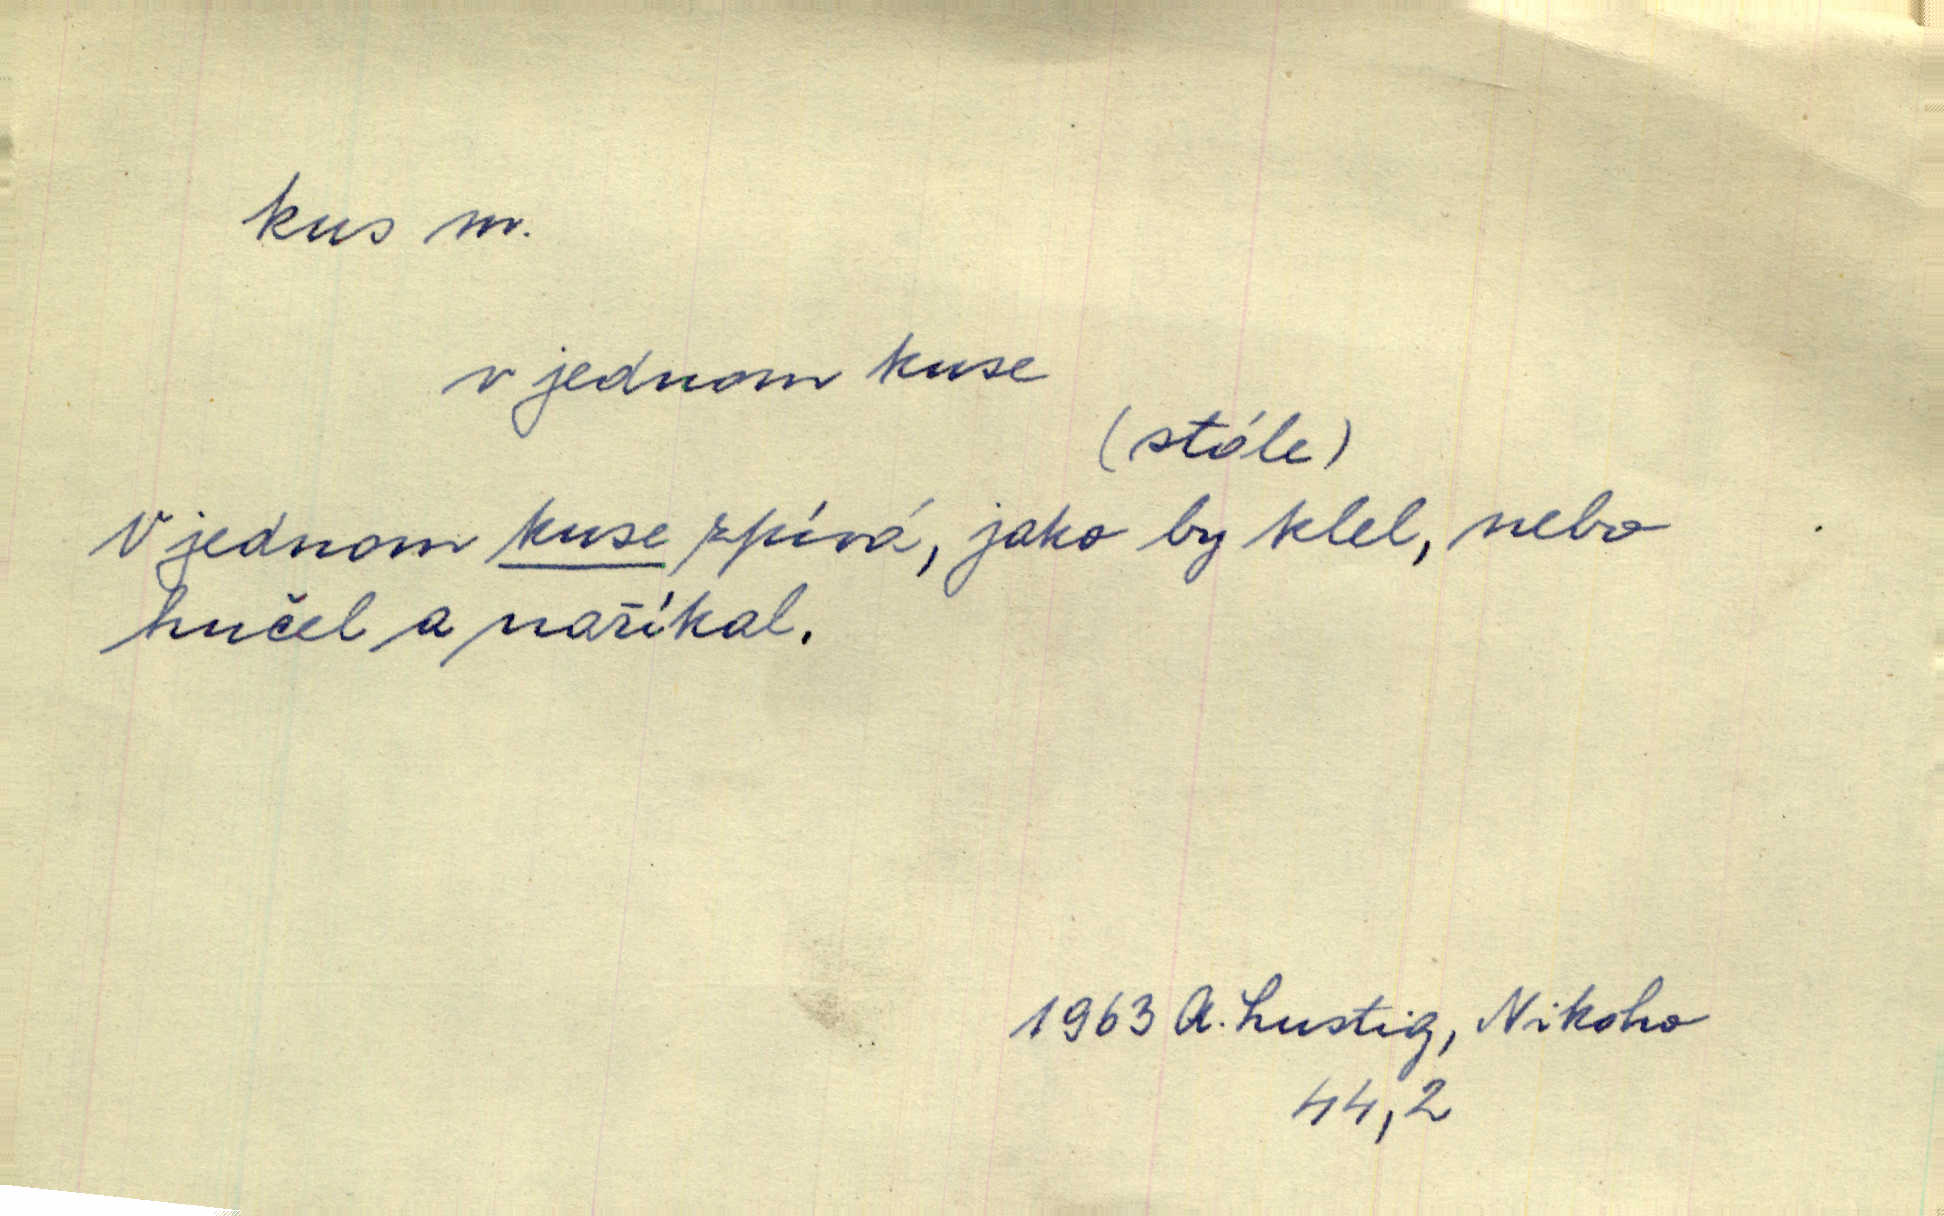 kus m.
v jednom kuse
(stále)
V jednom kuse zpívá, jako by klel, nebo
hučel a naříkal.
1963 A. Lustig, Nikoho
44,2